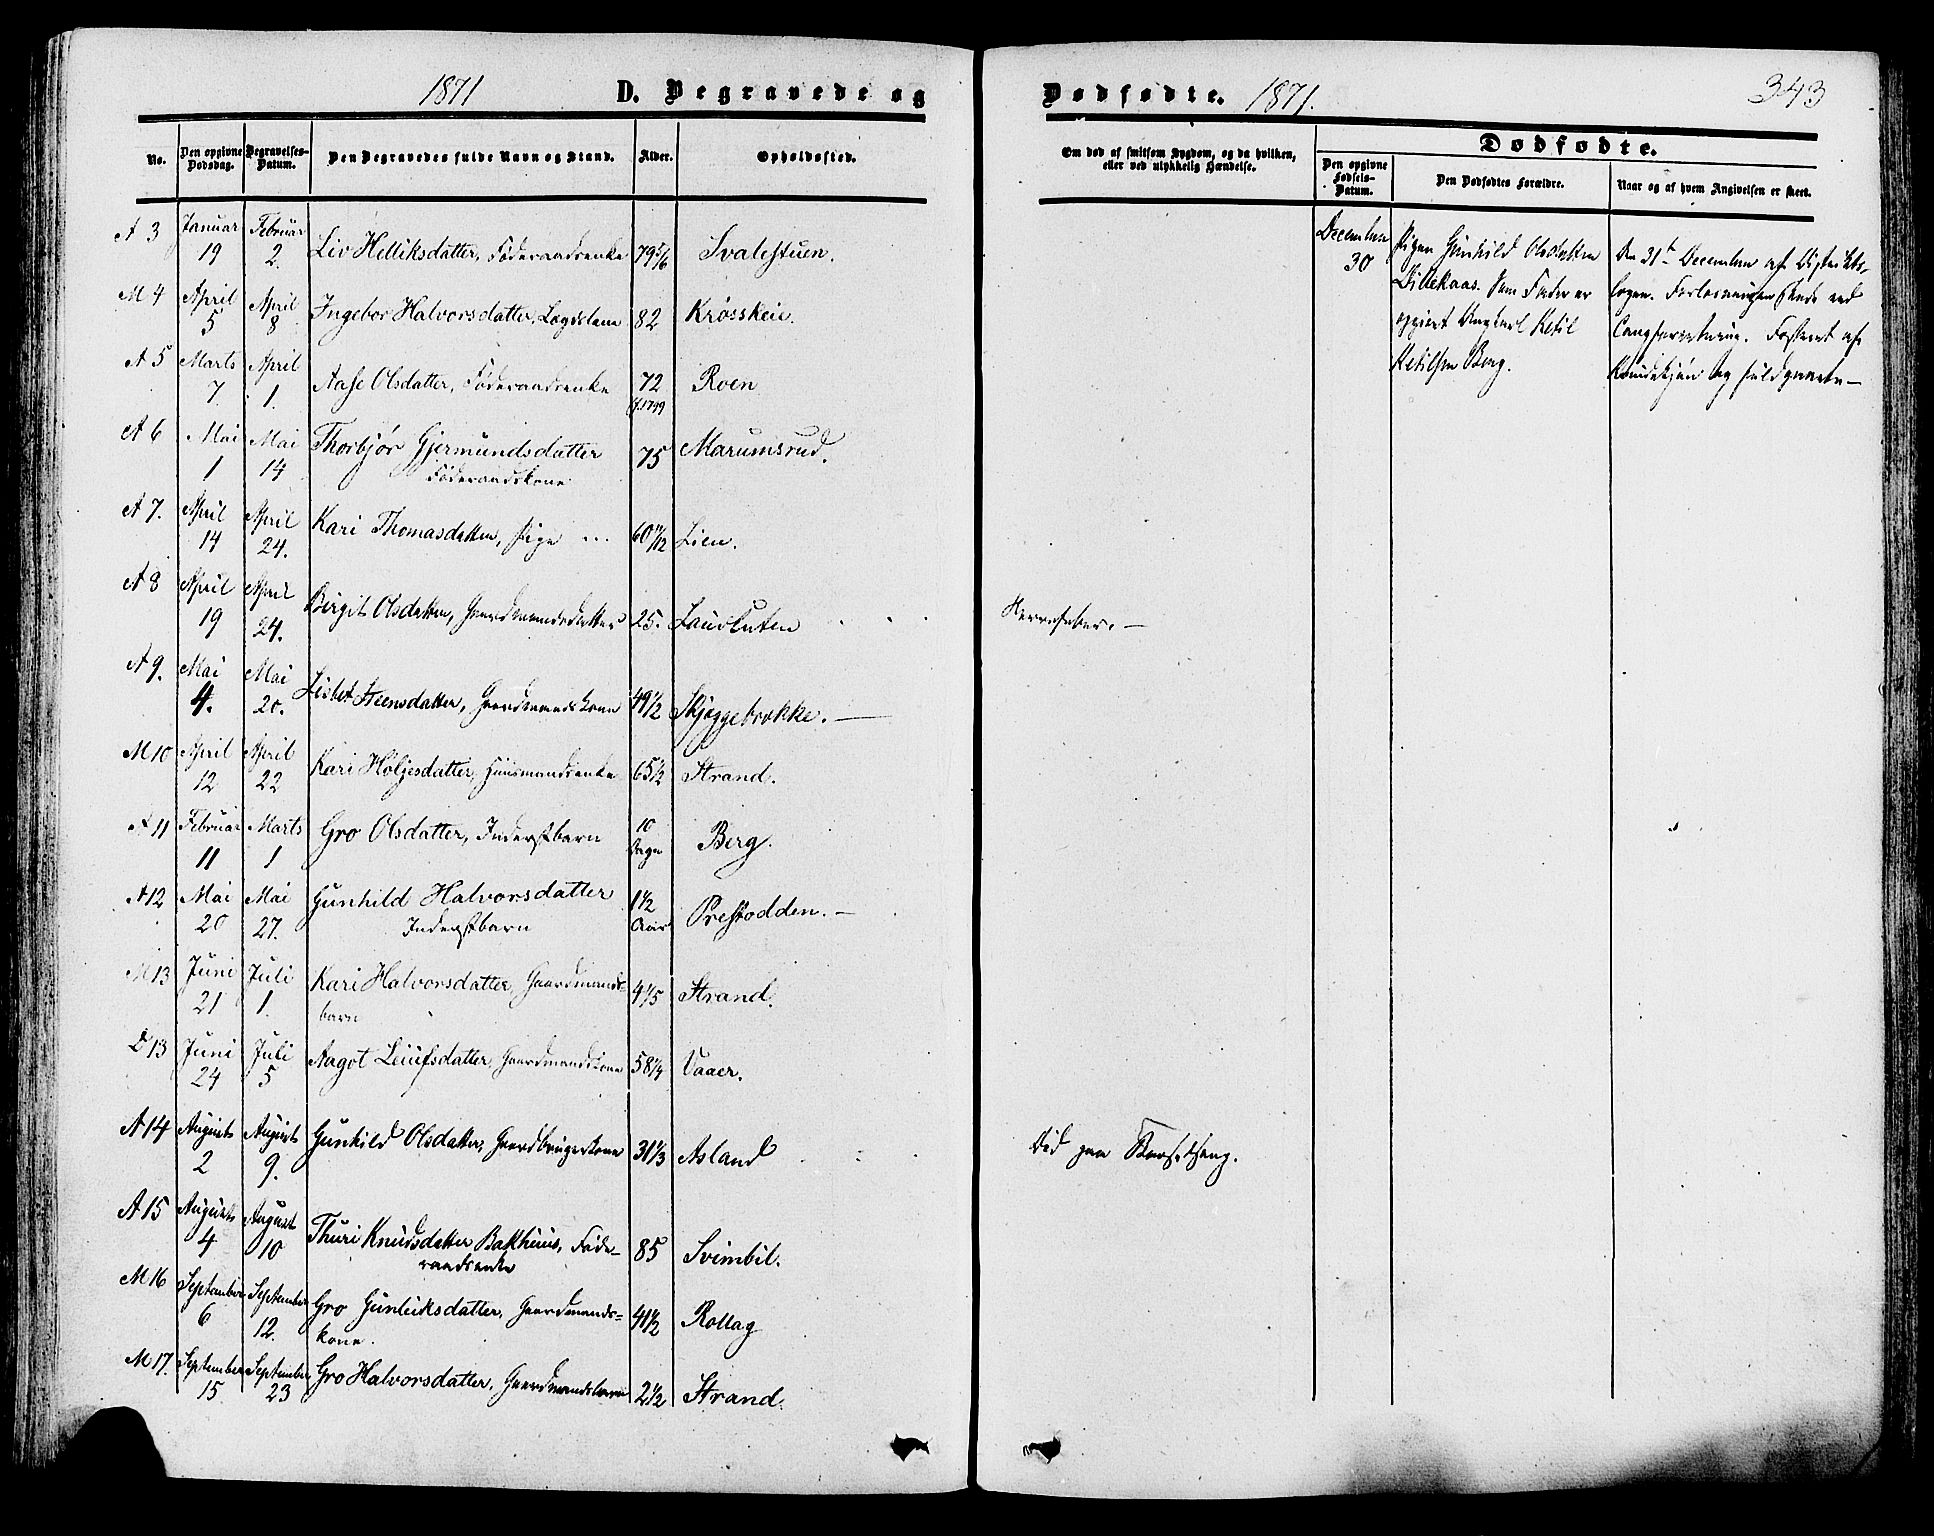 1871 D. Begravede og
No. Den opgivne Dødsdag. Begravelses-Datum. Den Begravedes fulde Navn og Stand. Alder. Opholdssted.
A 3 Januar 19 Februar 2. Liv Helliksdatter, Föderaadsenke 79 5/6 Svalestuen.
M 4 April 5 April 8 Ingebor Halvorsdatter, Lægdslem 82 Krøsskeie.
A 5 Marts 7 April 1. Aase Olsdatter, Föderaadsenke 72 Roen
(f. 1799
A 6 Mai 1 Mai 14 Thorbjør Gjermundsdatter 75 Marumsrud.
Föderaadskone
A 7. April 14 April 24. Kari Thomasdatter, Pige 60 11/12 Lien.
A 8 April 19 April 24. Birgit Olsdatter, Gaardmandsdatter 25.
A 9. Mai 4. Mai 20. Lisbet Steensdatter, Gaardmandskone 49 1/2 Skjeggebrokke.
M 10 April 12 April 22 Kari Holjesdatter, Huusmandsenke 65 1/2 Strand.
A 11 Februar 11 Marts 1 Gro Olsdatter, Inderstbarn 10 Dage Berg.
A 12 Mai 20 Mai 27. Gunhild Halvorsdatter 1 1/2 Aar Prestodden.
Inderstbarn
M 13 Juni 21 Juli 1. Kari Halvorsdatter, Gaardmands- 4 1/5 Strand.
barn
D 13 Juni 24 Juli 5 Aagot Leiufsdatter, Gaardmandskone 58 1/4 Vaaer.
A 14 Augusts 2 August 9. Gunhild Olsdatter, Gaardbrugerkone 31 1/3 Asland
A 15 Augusts 4 August 10 Thuri Knudsdatter Bakhuus, Föde- 85 Svimbil.
raadsenke
M 16 September 6 September 12. Gro Gunleiksdatter, Gaardmands- 41 1/2 Rollag
kone.
M 17. September 15 September 23 Gro Halvorsdatter, Gaardmandsbarn 2 1/2 Strand.
Dødfødte. 1871. 343
Om død af smitsom Sygdom, og da hvilken,
eller ved ulykkelig Hændelse.
Dødfødte.
Den opgivne Fødsels-Datum. Den Dødfødtes Forældre. Naar og af hvem Angivelsen er skeet.
December 30
Pige Gunhild Olsdatter
Som Fader er
opgivet Ungkarl Ketil
Ketilsen Berg.
Den 31te December af Distrikts-
lægen. Forløsningen skede ved
Tangforretning. Fosteret af
Kvindekjøn og fuldbaaret
Død paa Barselseng.